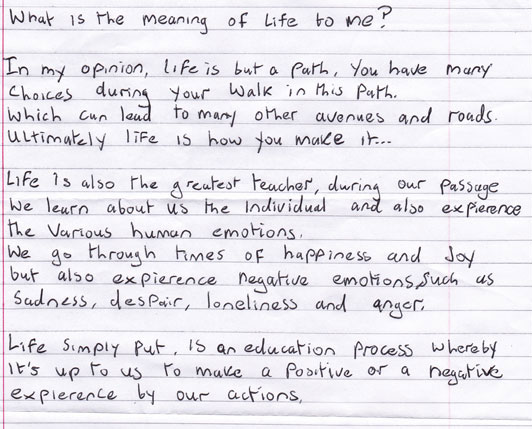 What is the meaning of Life to me?
In my opinion, life is but a path, You have many
Choices during your walk in this Path.
Which can lead to many other avenues and roads.
Ultimately life is how you make it...
Life is also the greatest teacher, during our passage
We learn about us the Individual and also expierence
the Various human emotions.
We go through times of happiness and Joy
but also expierence negative emotions, Such as
Sadness, despair, loneliness and anger.
Life Simply Put, is an education process whereby
it's up to us to make a Positive or a negative
expierence by our actions,